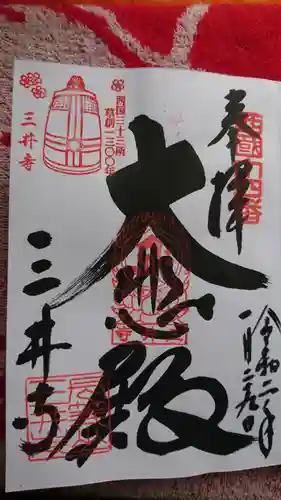 奉拝
西国十四番
令和二年
一月二九日
大悲殿
西国三十三所
草創一三〇〇年
三井寺
三井寺